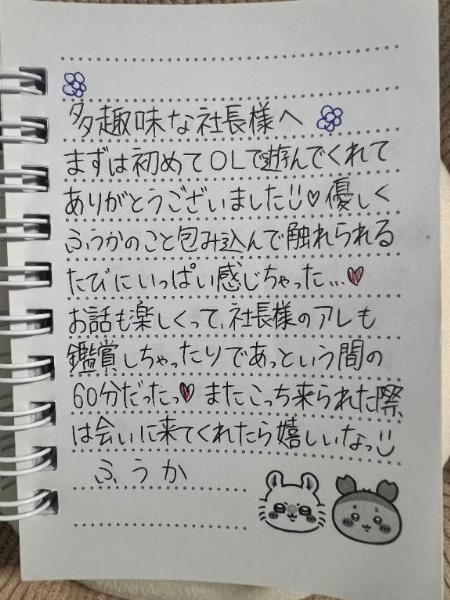 多趣味な社長様へ
まずは初めてOLで遊んでくれて
ありがとうございました♡優しく
ふうかのこと包み込んで触れられる
たびにいっぱい感じちゃった…♥
お話も楽しくって、社長様のアレも
鑑賞しちゃったりであっという間の
60分だったっ♥またこっち来られた際
は会いに来てくれたら嬉しいなっ
ふうか